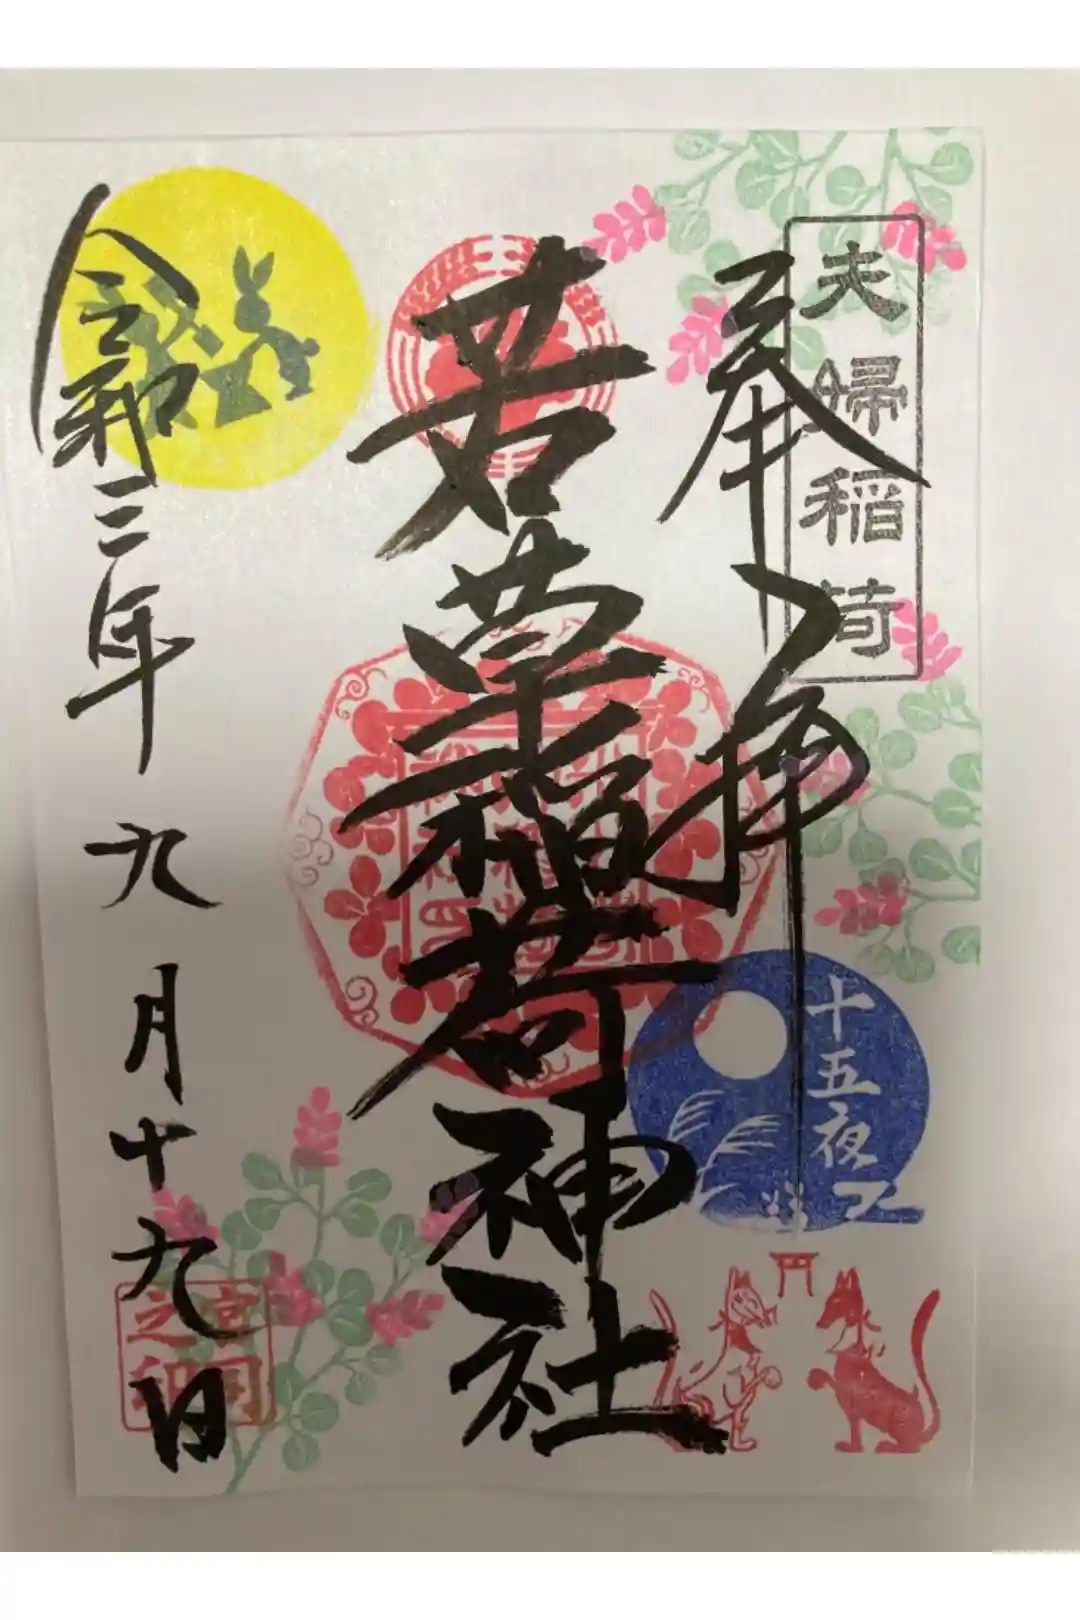 夫婦稲荷
奉拝
十五夜
若栄稲荷神社
令和三年九月十九日